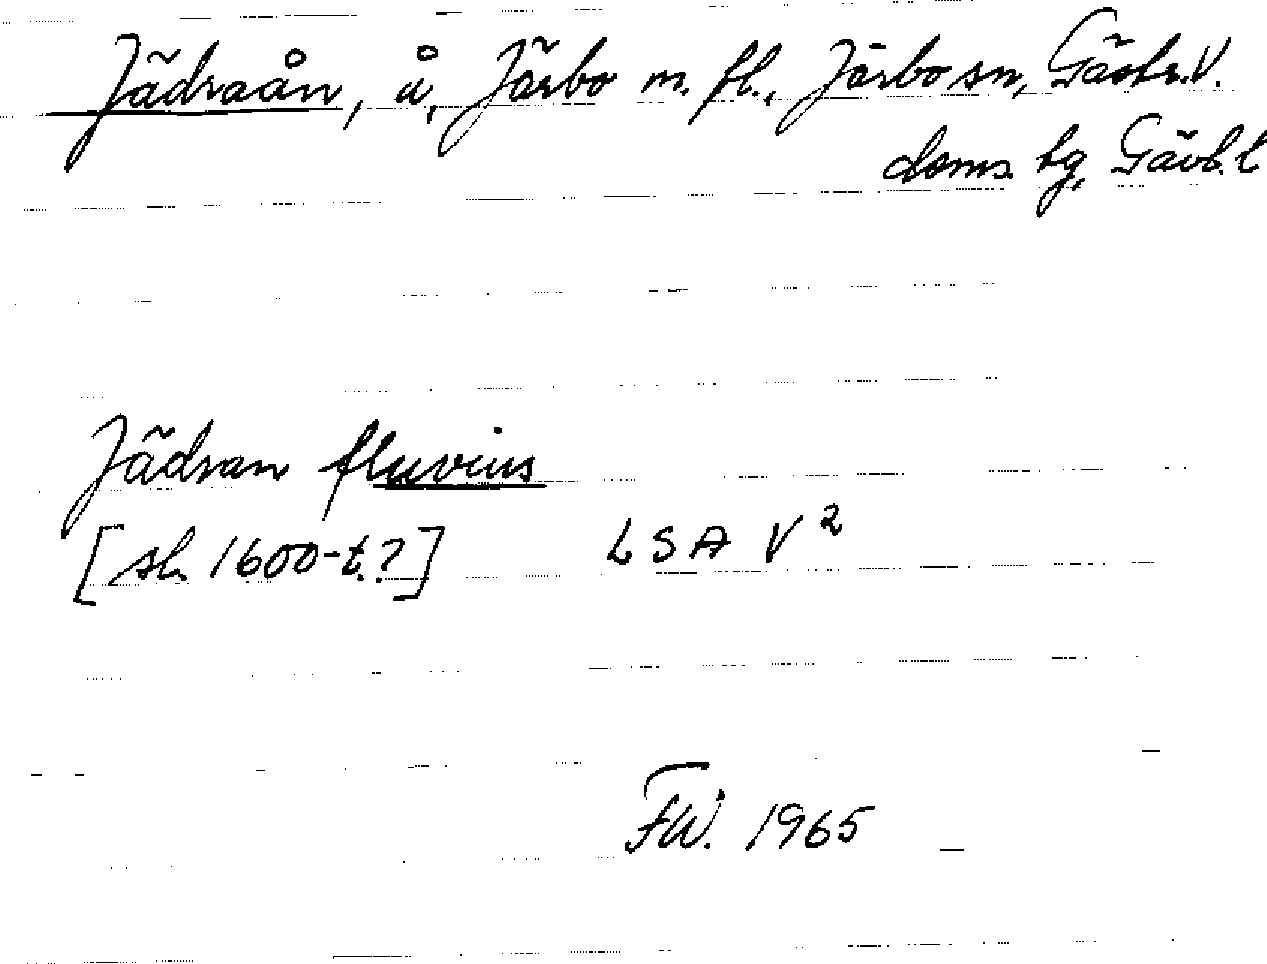 Jädraån, å, Järbo m. fl., Järbo sn, Gästr.V.
doms. hg, Gävb.l
Jädran fluvius
[sl. 1600-t.?] LSA V²
FW. 1965